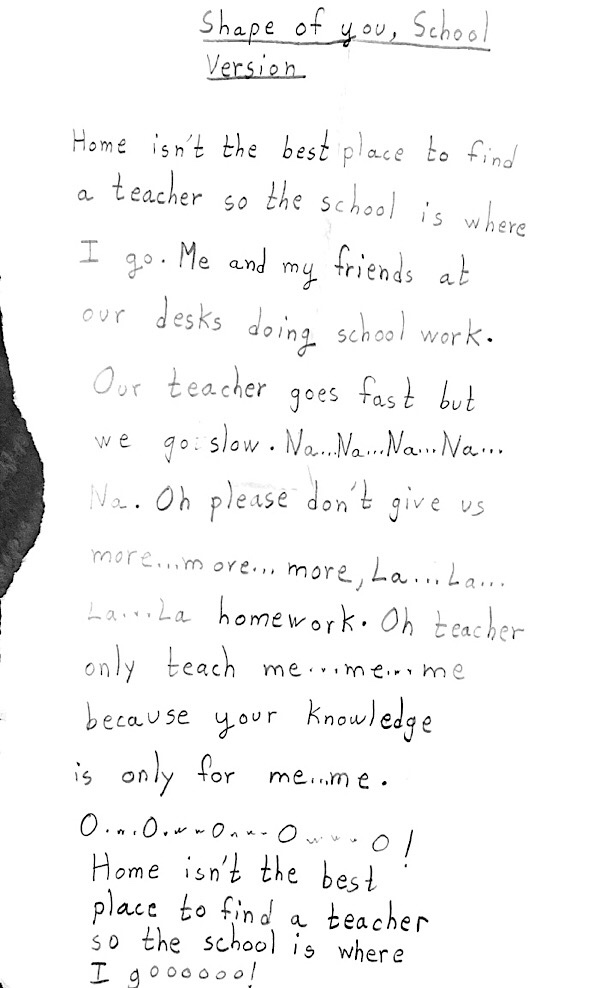 Shape of you, School
Version
Home isn't the best place to find
a teacher so the school is where
I go. Me and my friends at
our desks doing school work.
Our teacher goes fast but
we go slow. Na...Na...Na...Na...
Na. Oh please don't give us
more...more... more, La...La...
La...La homework. Oh teacher
only teach me...me...me
because your knowledge
is only for me...me.
O...O...O...O...O!
Home isn't the best
place to find a teacher
so the school is where
I goooooo!